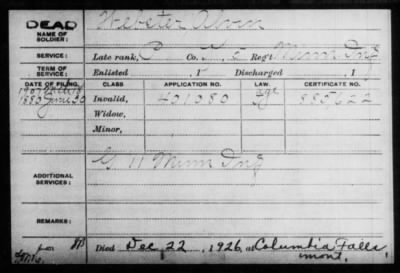 DEAD
NAME OF SOLDIER: Webster Alvin
SERVICE: Late rank, Co. Reg't Minn Inf
TERM OF SERVICE: Enlisted , 1 Discharged , 1
DATE OF FILING. CLASS APPLICATION NO. LAW. CERTIFICATE NO.
age
1880 June 30 Invalid, 401080 885622
Widow,
Minor,
ADDITIONAL SERVICES: G 11 Minn Inf
REMARKS:
Died Dec 22, 1926, at Columbia Falls
Mont.